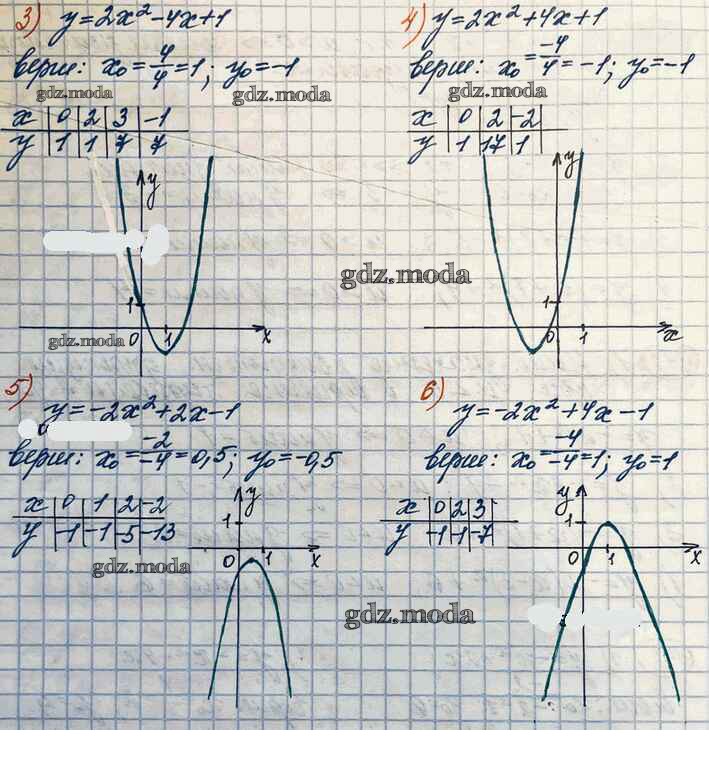 3) y=2x²-4x+1
верш: x₀=4/4=1; y₀=-1
gdz.moda
gdz.moda
x | 0 | 2 | 3 | -1
y | 1 | 1 | 7 | 7
y
1
0 1 x
gdz.moda
4) y=2x²+4x+1
верш: x₀=-4/4=-1; y₀=-1
gdz.moda
x | 0 | 2 | -2
y | 1 | 17 | 1
y
gdz.moda
1
0 1 x
5)
y=-2x²+2x-1
верш: x₀=-2/-4=0,5; y₀=-0,5
x | 0 | 1 | 2 | -2
y | -1 | -1 | -5 | -13
gdz.moda
y
1
0 1 x
6)
y=-2x²+4x-1
верш: x₀=-4/-4=1; y₀=1
x | 0 | 2 | 3
y | -1 | -1 | -7
y
1
0 1 x
gdz.moda